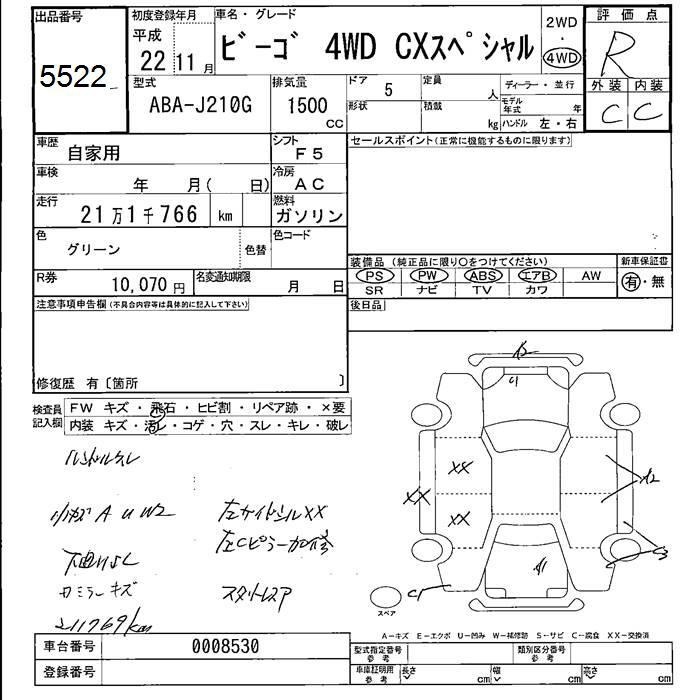 出品番号
5522
初度登録年月
平成
22 11月
車名・グレード
ビーゴ 4WD CXスペシャル
2WD
・
4WD
評価点
R
外装 内装
C C
型式
ABA-J210G
排気量
1500
CC
ドア
5
定員
人
形状
積載
kg
ディーラー・並行
モデル年式
年
ハンドル 左・右
車歴
自家用
シフト
F5
セールスポイント(正常に機能するものに限ります)
車検
年 月( 日)
冷房
AC
走行
21万1千766 km
燃料
ガソリン
色
グリーン
色替
色コード
装備品 (純正品に限り○をつけてください)
新車保証書
PS PW ABS エアB AW
SR ナビ TV カワ
有・無
R券
10,070 円
名変通知期限
月 日
後日品
注意事項申告欄(不具合内容等は具体的に記入して下さい)
修復歴 有〔箇所 〕
検査員記入欄
FW キズ・飛石・ヒビ割・リペア跡・×要
内装 キズ・汚レ・コゲ・穴・スレ・キレ・破レ
ハンドルスレ
小キズ A U W2
左サイドシルXX
左Cピラー加修
下廻りサビ
ルミラーキズ
スタットレスア
211769km
A2
C1
XX
XX
XX
A2
C3
A1
C1
スペア
A-キズ E-エクボ U-凹み W-補修跡 S-サビ C-腐食 XX-交換済
車台番号
0008530
登録番号
型式指定番号
参考
類別区分番号
参考
車庫証明用
参考
長さ cm
幅 cm
高さ cm